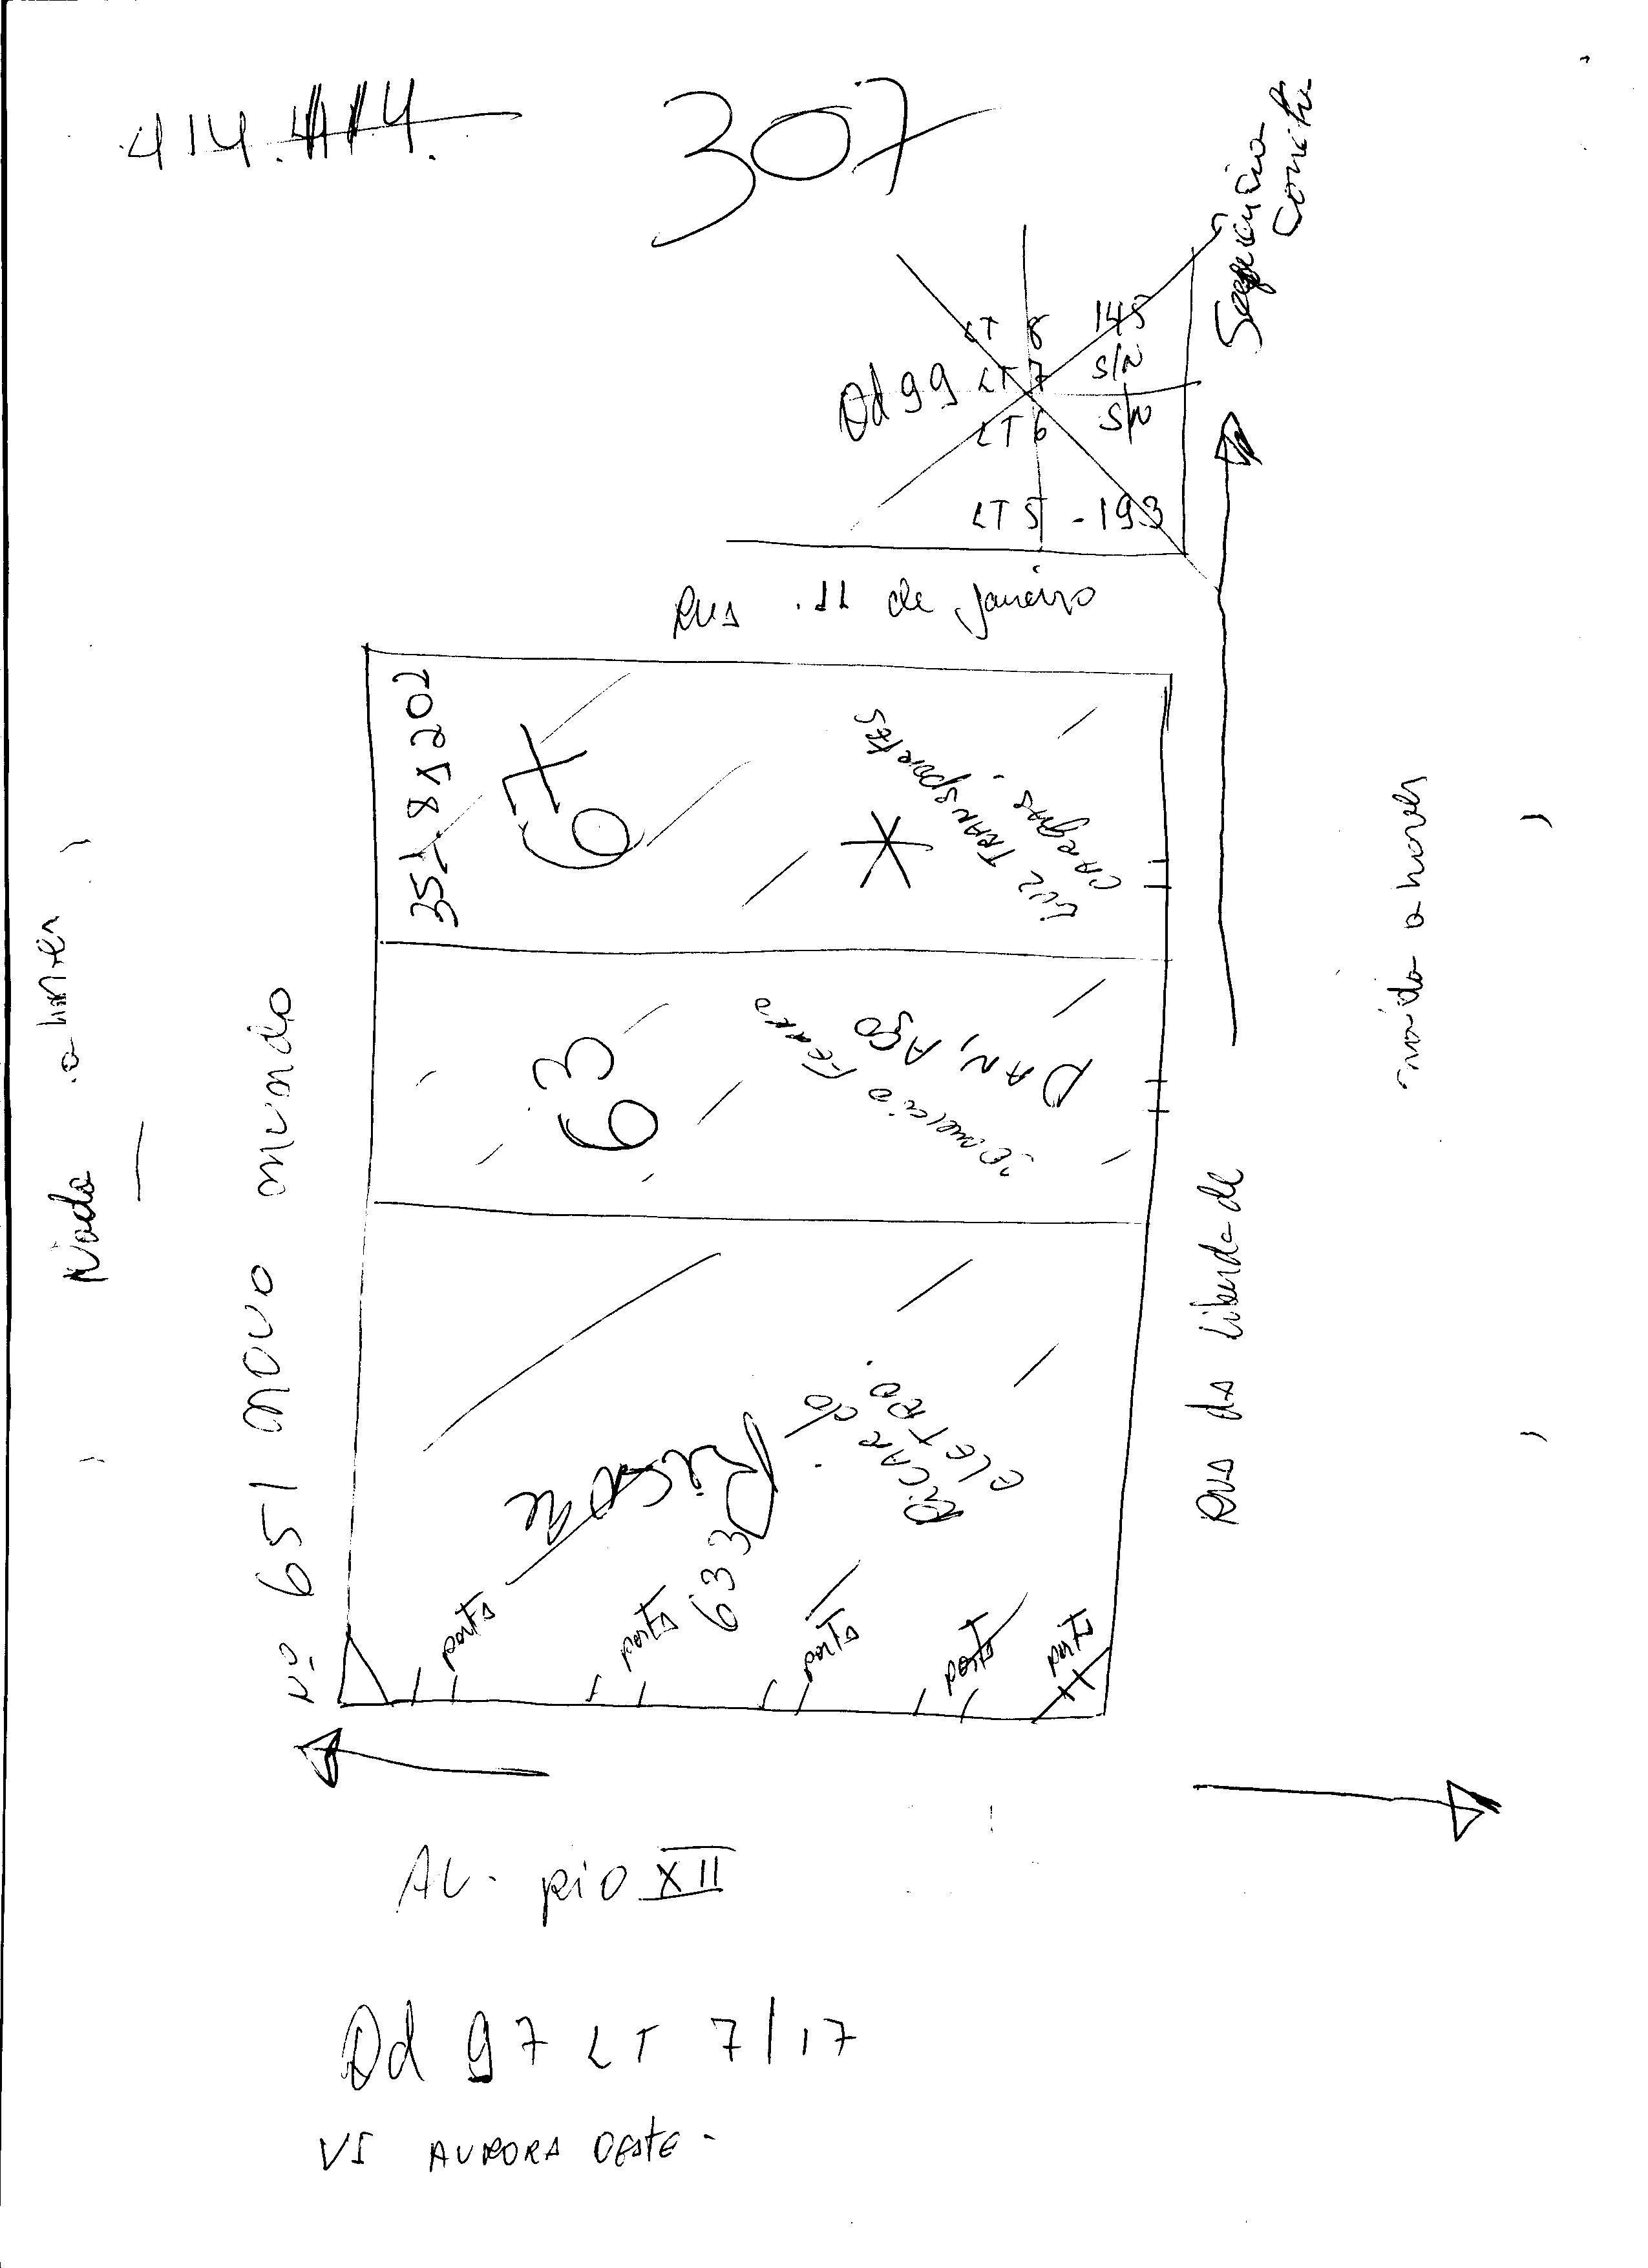 414.
307
Sequência
Correta
LT 8 145
Qd 99 LT 7 S/N
LT 6 S/N
LT 5 - 193
Rua 11 de janeiro
67
LUZ TRANSPORTES
CARGAS.
63
comercio Ferro
DAN, AÇO
Nada
Nº 651 novo mundo
Rua da Liberdade
nada a haver
RICARDO
ELETRO.
633
porta
porta
porta
porta
porta
AV. pio XII
Qd 97 LT 7/17
VI AURORA OESTE.